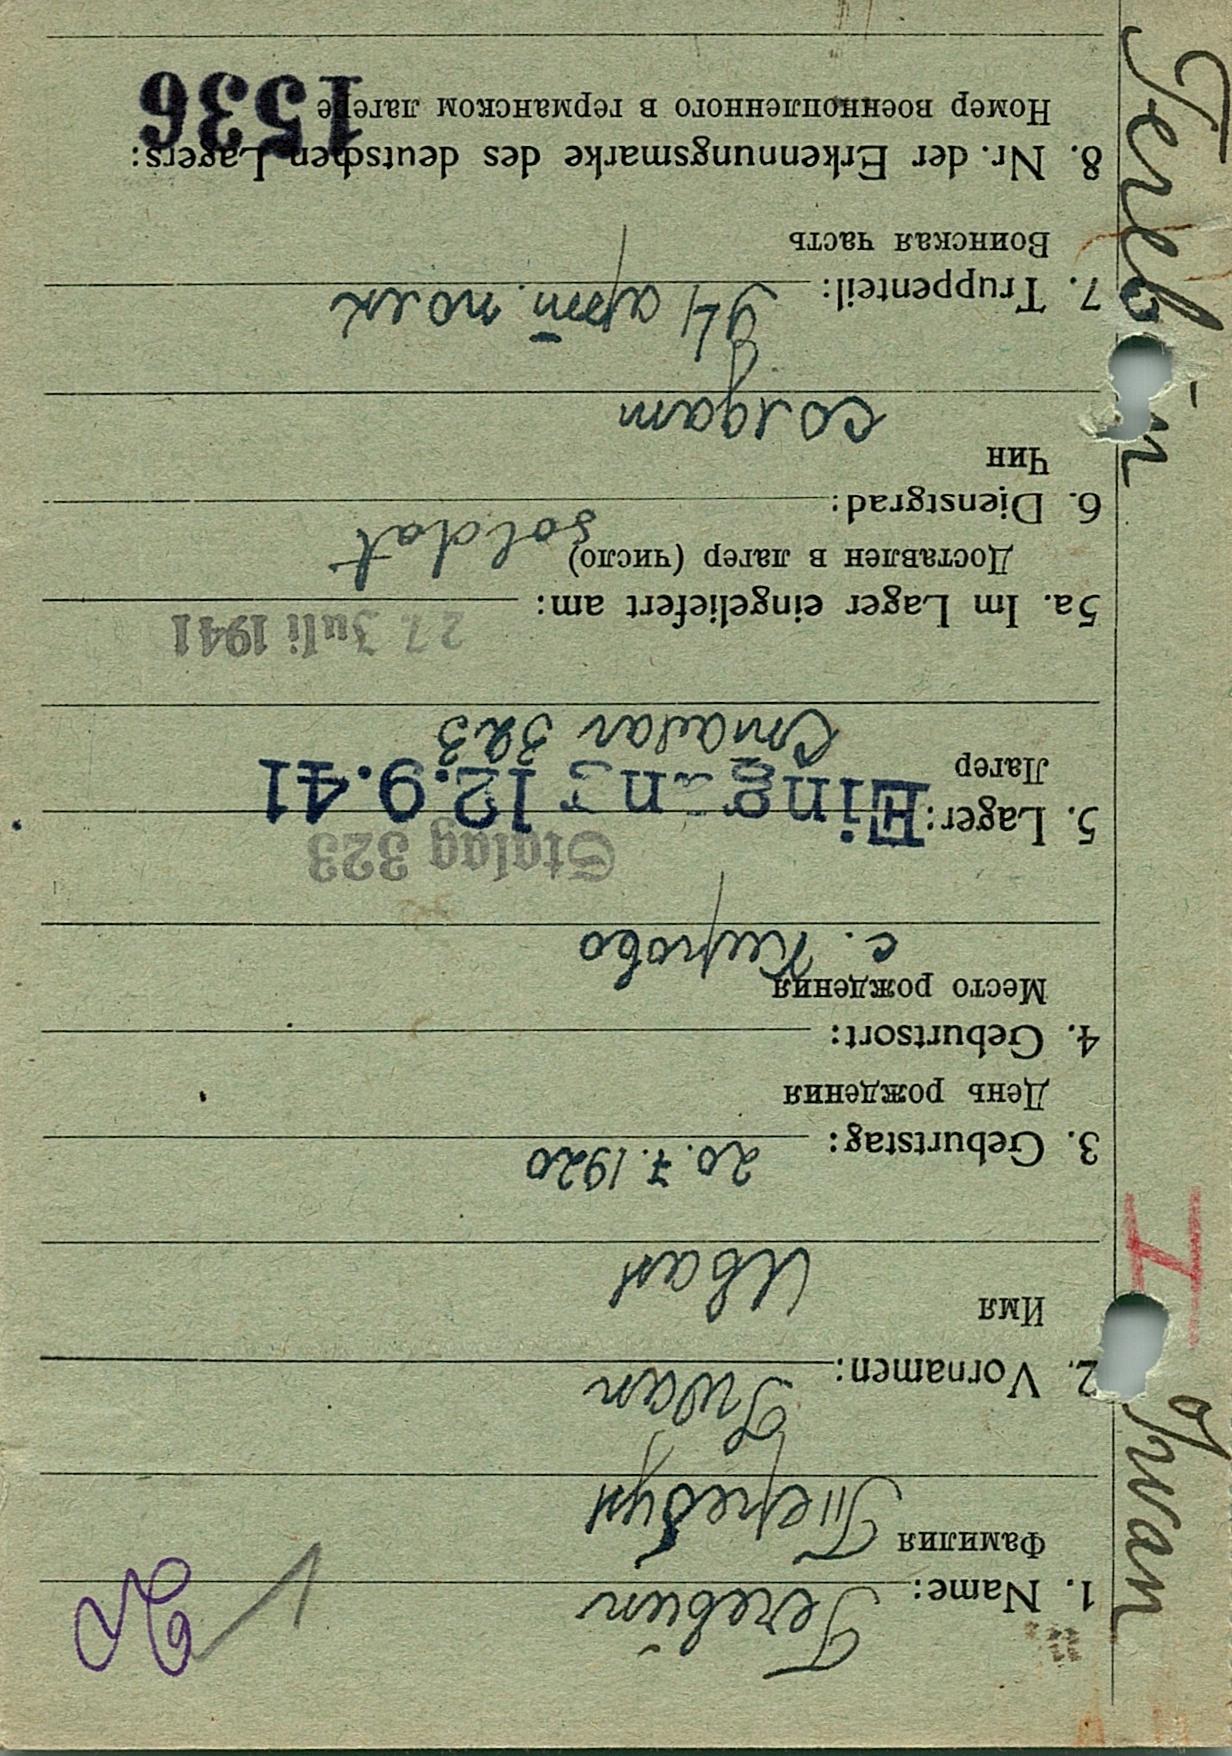 1. Name: Terebün
Фамилия Теребун
2. Vornamen: Iwan
Имя Иван
3. Geburtstag: 20.7.1920
День рождения
4. Geburtsort:
Место рождения с. Кирово
Stalag 323
5. Lager: Eingang 12.9.41
Лагер Сталаг 323
27. Juli 1941
5a. Im Lager eingeliefert am:
Доставлен в лагер (число)
6. Dienstgrad: soldat
Чин солдат
7. Truppenteil: 94 арт. полк
Воинская часть
8. Nr. der Erkennungsmarke des deutschen Lagers: 1536
Номер военнопленного в германском лагере
Iwan
I
1